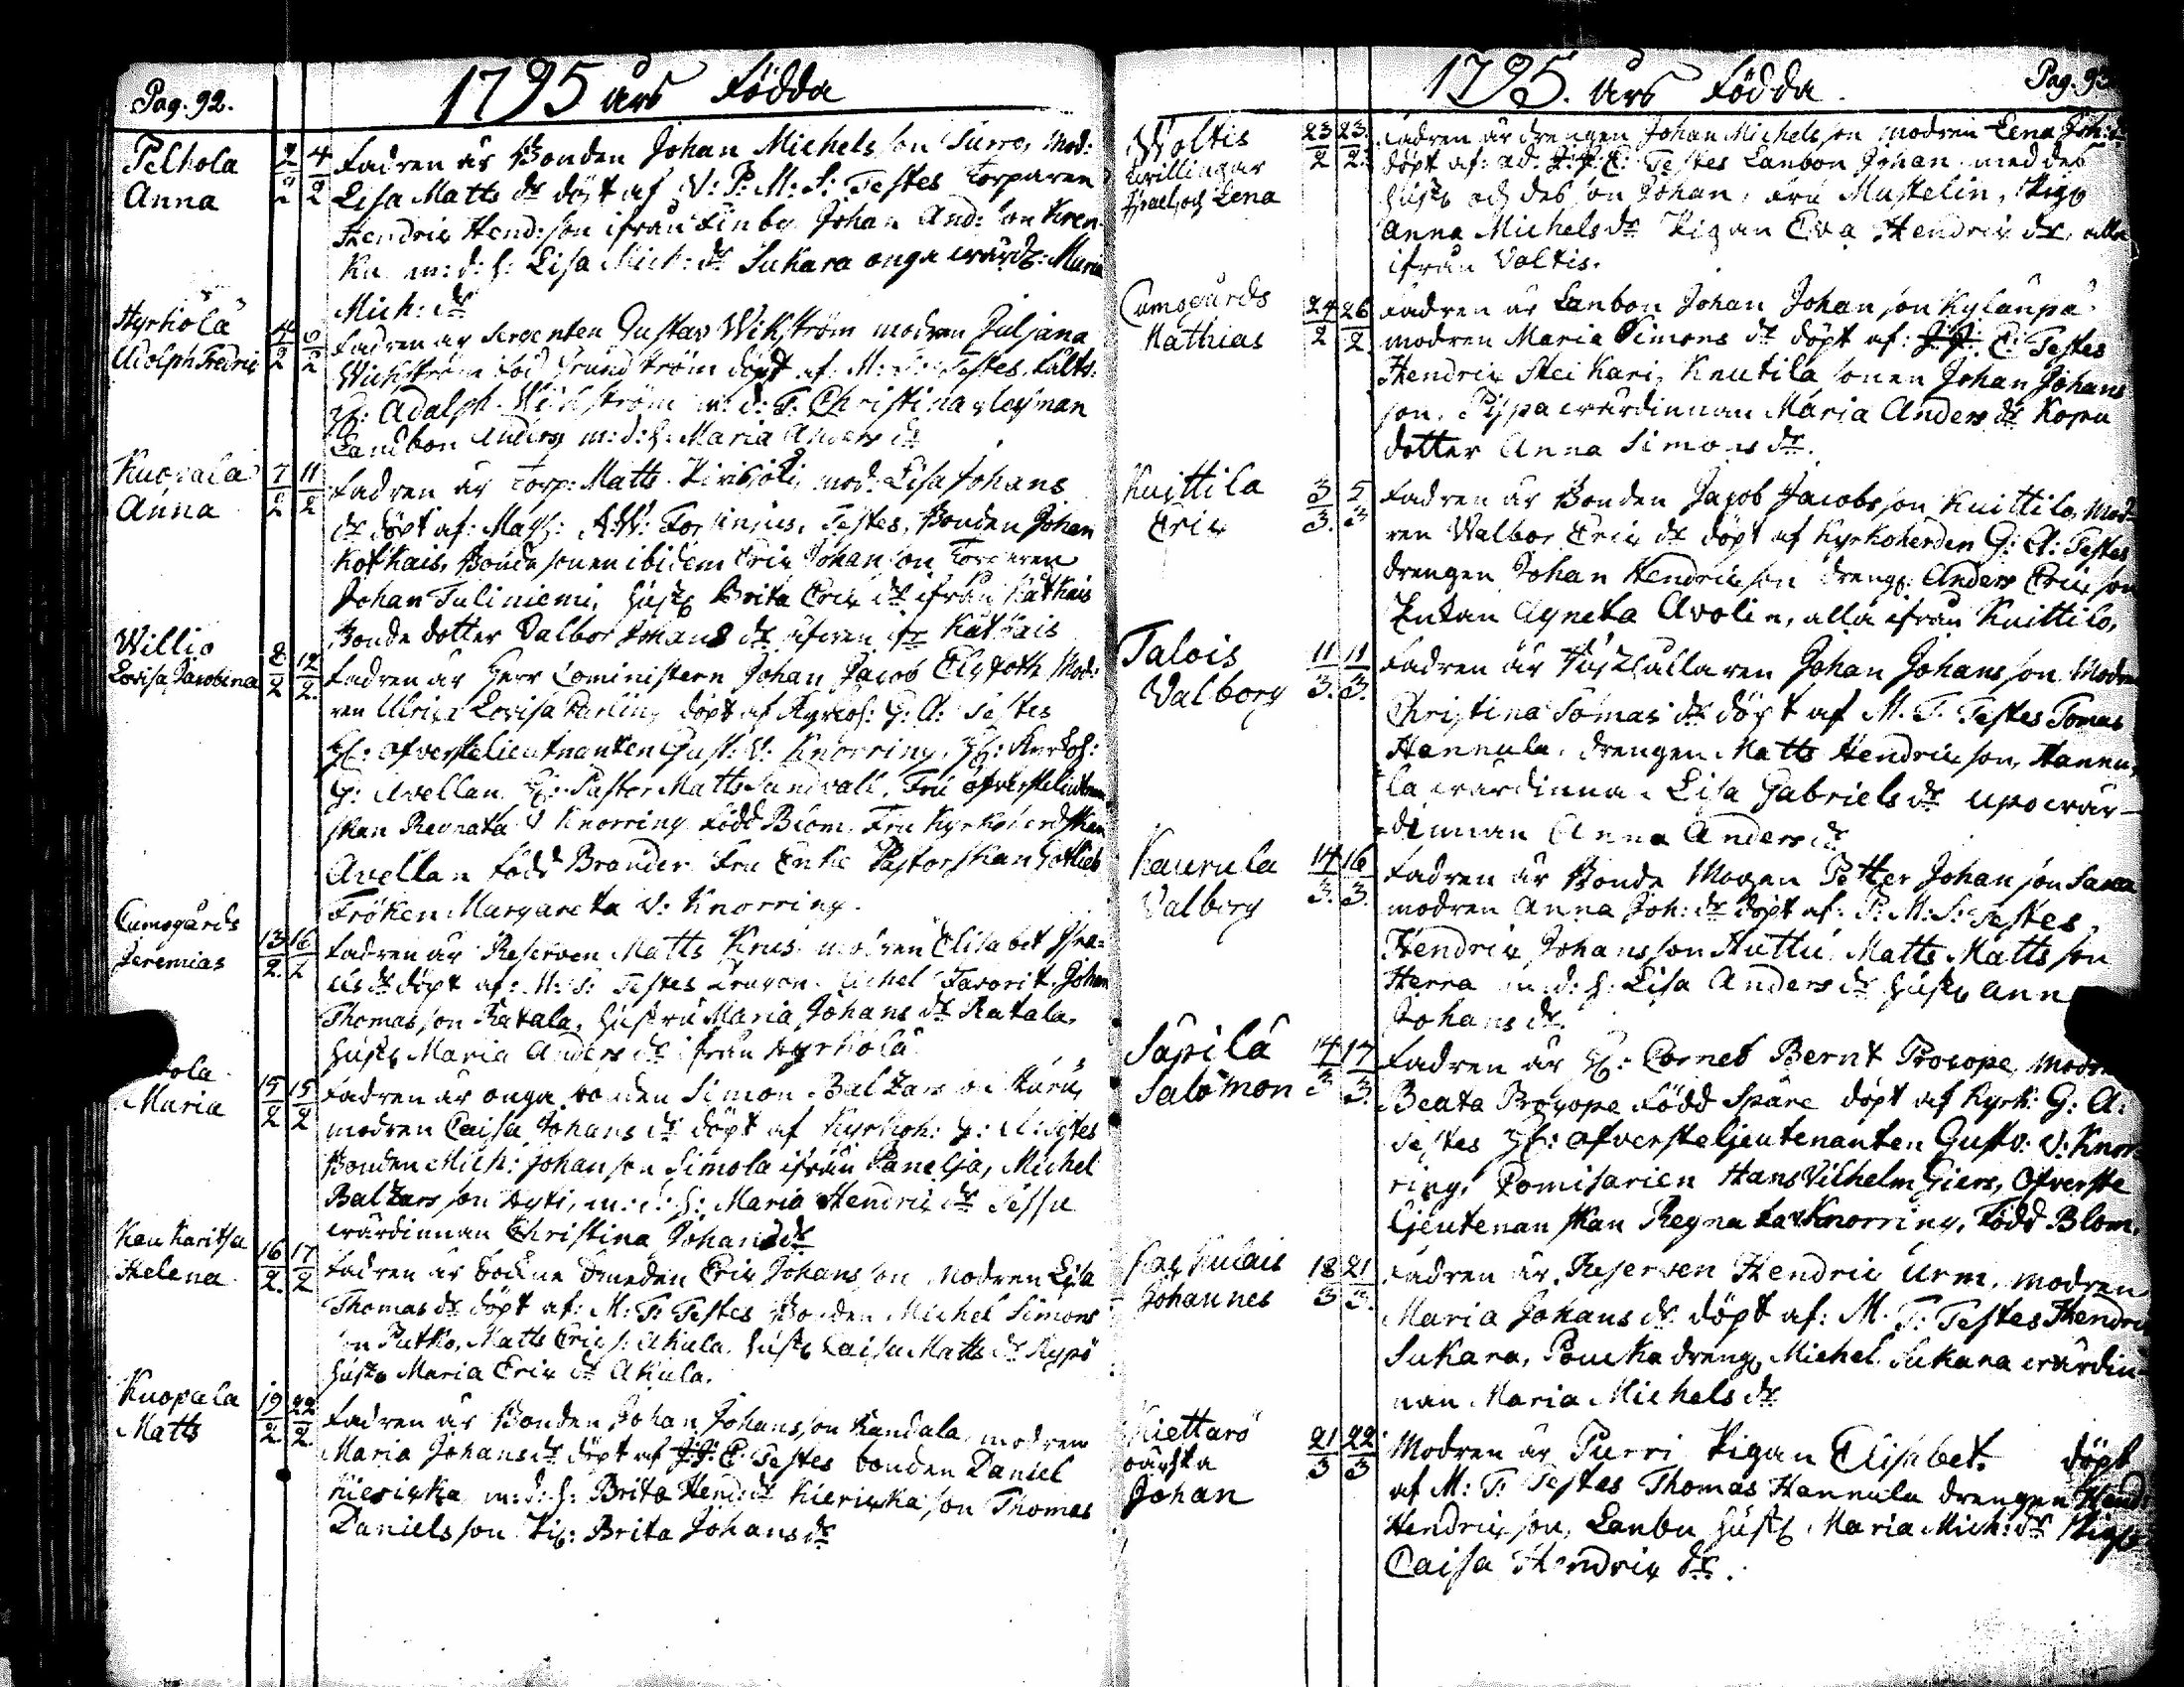 Pag. 92.
1795 års Födda
Pelhola
Anna
2/2 4/2
Fadren är Bonden Johan Michelsson Surre, Mod:
Lisa Matts dr döpt af V: P: M: S: Testes Torparen
Hendric Hend: son ifrån Finby Johan And: son
Ku m: d: h: Lisa Mich: dr Sukara onga wärd: Maria
Mich: dr
Hyrkölä
Adolph Fredric
4/2 6/2
Fadren är Sergenten Gustav Wikström modren Juljana
Wichström född Grundström döpt af M: S: Testes, Fält:
H: Adolph Wichström m: d: F. Christina
Landbon Anders m: d: h: Maria Anders dr
Kuopala
Anna
7/2 11/2
Fadren är Torp: Matts mod: Lisa Johans
dr döpt af: Mag: Testes, Bonden Johan
Kotkais, Bonde sonen ibidem Eric Johanson Torparen
Johan Tuliniemi, Hust Brita Eric dr ifrån Kätkais
Bonde dotter Valbor Johans dr äfwen ifr Kätkais
Willio
Lovisa Jacobina
8/2 12/2
Fadren är Herr Cominstern Johan Jacob Elgfoth Mod:
ren Ulrica Lovisa döpt af Kyrkoh: G: A: Testes
H: öfverstelieutnanten Gust: V: Knorring, H: Kyrkoh:
G: Avellan H: Pastor Matts Sundvall, Fru öfverstelieutnan
skan Regnata V Knorring född Blom. Fru Kyrkoherdskan
Avellan född Brander Fru Enke Pastorskan Gottlieb
Fröken Margareta V: Knorring.
Cumogårds
Jeremias
13/2 16/2
Fadren är Reserven Matts Krus modren Elisabet Isra-
els dr döpt af: M: S: Testes Dragon Michel Favorit, Johan
Thomas son Ratala, hustru Maria Johans dr Ratala,
hust Maria Anders dr ifrån Hyrkölä
ola
Maria
15/2 15/2
Fadren är onga bonden Simon Baltzars son
modren Caisa Johans dr döpt af Kyrkoh: G: A: Testes
Bonden Mich: Johanson Simola ifrån Panelja, Michel
Baltzars son m: d: h: Maria Hendric dr
wärdinnan Christina Johans dr
Kau Karitsa
Helena
16/2 17/2
Fadren är Sockne Smeden Eric Johansson Modren Lisa
Thomas dr döpt af: M: T: Testes Bonden Michel Simons
son Putko, Matts Eric s: Akula, hust Caisa Matts dr
hust Maria Eric dr Akula.
Kuopala
Matts
19/2 22/2
Fadren är Bonden Johan Johansson Kandala modren
Maria Johans dr döpt af J: J: E: Testes bonden Daniel
Kiericka m: d: h: Brita Hend: dr Kiericka, son Thomas
Daniels son Pig: Brita Johans dr
1795. års Födda.
Pag. 93
Woltis
twillingar
Israel och Lena
23/2 23/2
Fadren är drengen Johan Michelsson modren Lena Joh: dr
döpt af: ad. J: J: E: Testes Lanbon Johan med des
hust och des son Johan, Fru Muskelin, Pig
Anna Michels dr Pigan Eva Hendric dr, alla
ifrån Voltis.
Cumogårds
Mathias
24/2 26/2
Fadren är Lanbon Johan Johan son Kyläupä
modren Maria Simons dr döpt af: J: J: E: Testes
Hendric Stei Kari, Knutila sonen Johan Johans
son. Pyppä wärdinnan Maria Anders dr Kopu
dotter Anna Simons dr.
Kuittila
Eric
3/3 5/3
Fadren är Bonden Jacob Jacobs son Kuittilo, Mod-
ren Walbor Eric dr döpt af Kyrkoherden G: A: Testes
drengen Johan Hendricson dreng: Anders Ericson
Enkan Agneta Avolin, alla ifrån Kuittilo,
Talois
Valborg
11/3 11/3
Fadren är Johan Johansson Modren
Christina Tomas dr döpt af M. T. Testes Tomas
Hannula, drengen Matts Hendricson, Hannu-
la wärdinna Lisa Gabriels dr Upo wär-
dinnan Anna Anders dr
Kaurula
Valborg
14/3 16/3
Fadren är Bonde Mogen Petter Johan son
modren Anna Joh: dr döpt af: P: M: S: Testes,
Hendric Johansson Huttu, Matts Matts son
Herra m: d: h: Lisa Anders dr hust Ann
Johans dr.
Säpilä
Salomon
14/3 17/3
Fadren är H: Cornet Bernt Procope, Modren
Beata Procope Född Spåre döpt af Kyrk: G: A:
Testes H: öfversteljeutenanten Gustv: V: Knor-
ring, Comisarien Hans Vilhelm Giers, öfverste
ljeutenanskan Regnata V Knorring, Född Blom.
Kaskulais
Johannes
18/3 21/3
Fadren är Reserven Hendric Urm, modren
Maria Johans dr döpt af: M. T: Testes Hendric
Sukara, Poucka dreng, Michel Sukara wärdin-
nan Maria Michels dr
Kiettarö
oäckta
Johan
21/3 22/3
Modren är Purri Pigan Elisabet. döpt
af M: T: Testes Thomas Hannula drengen Hend:
Hendricson, Lanbu hust Maria Mich: dr Pig
Caisa Hendric dr.